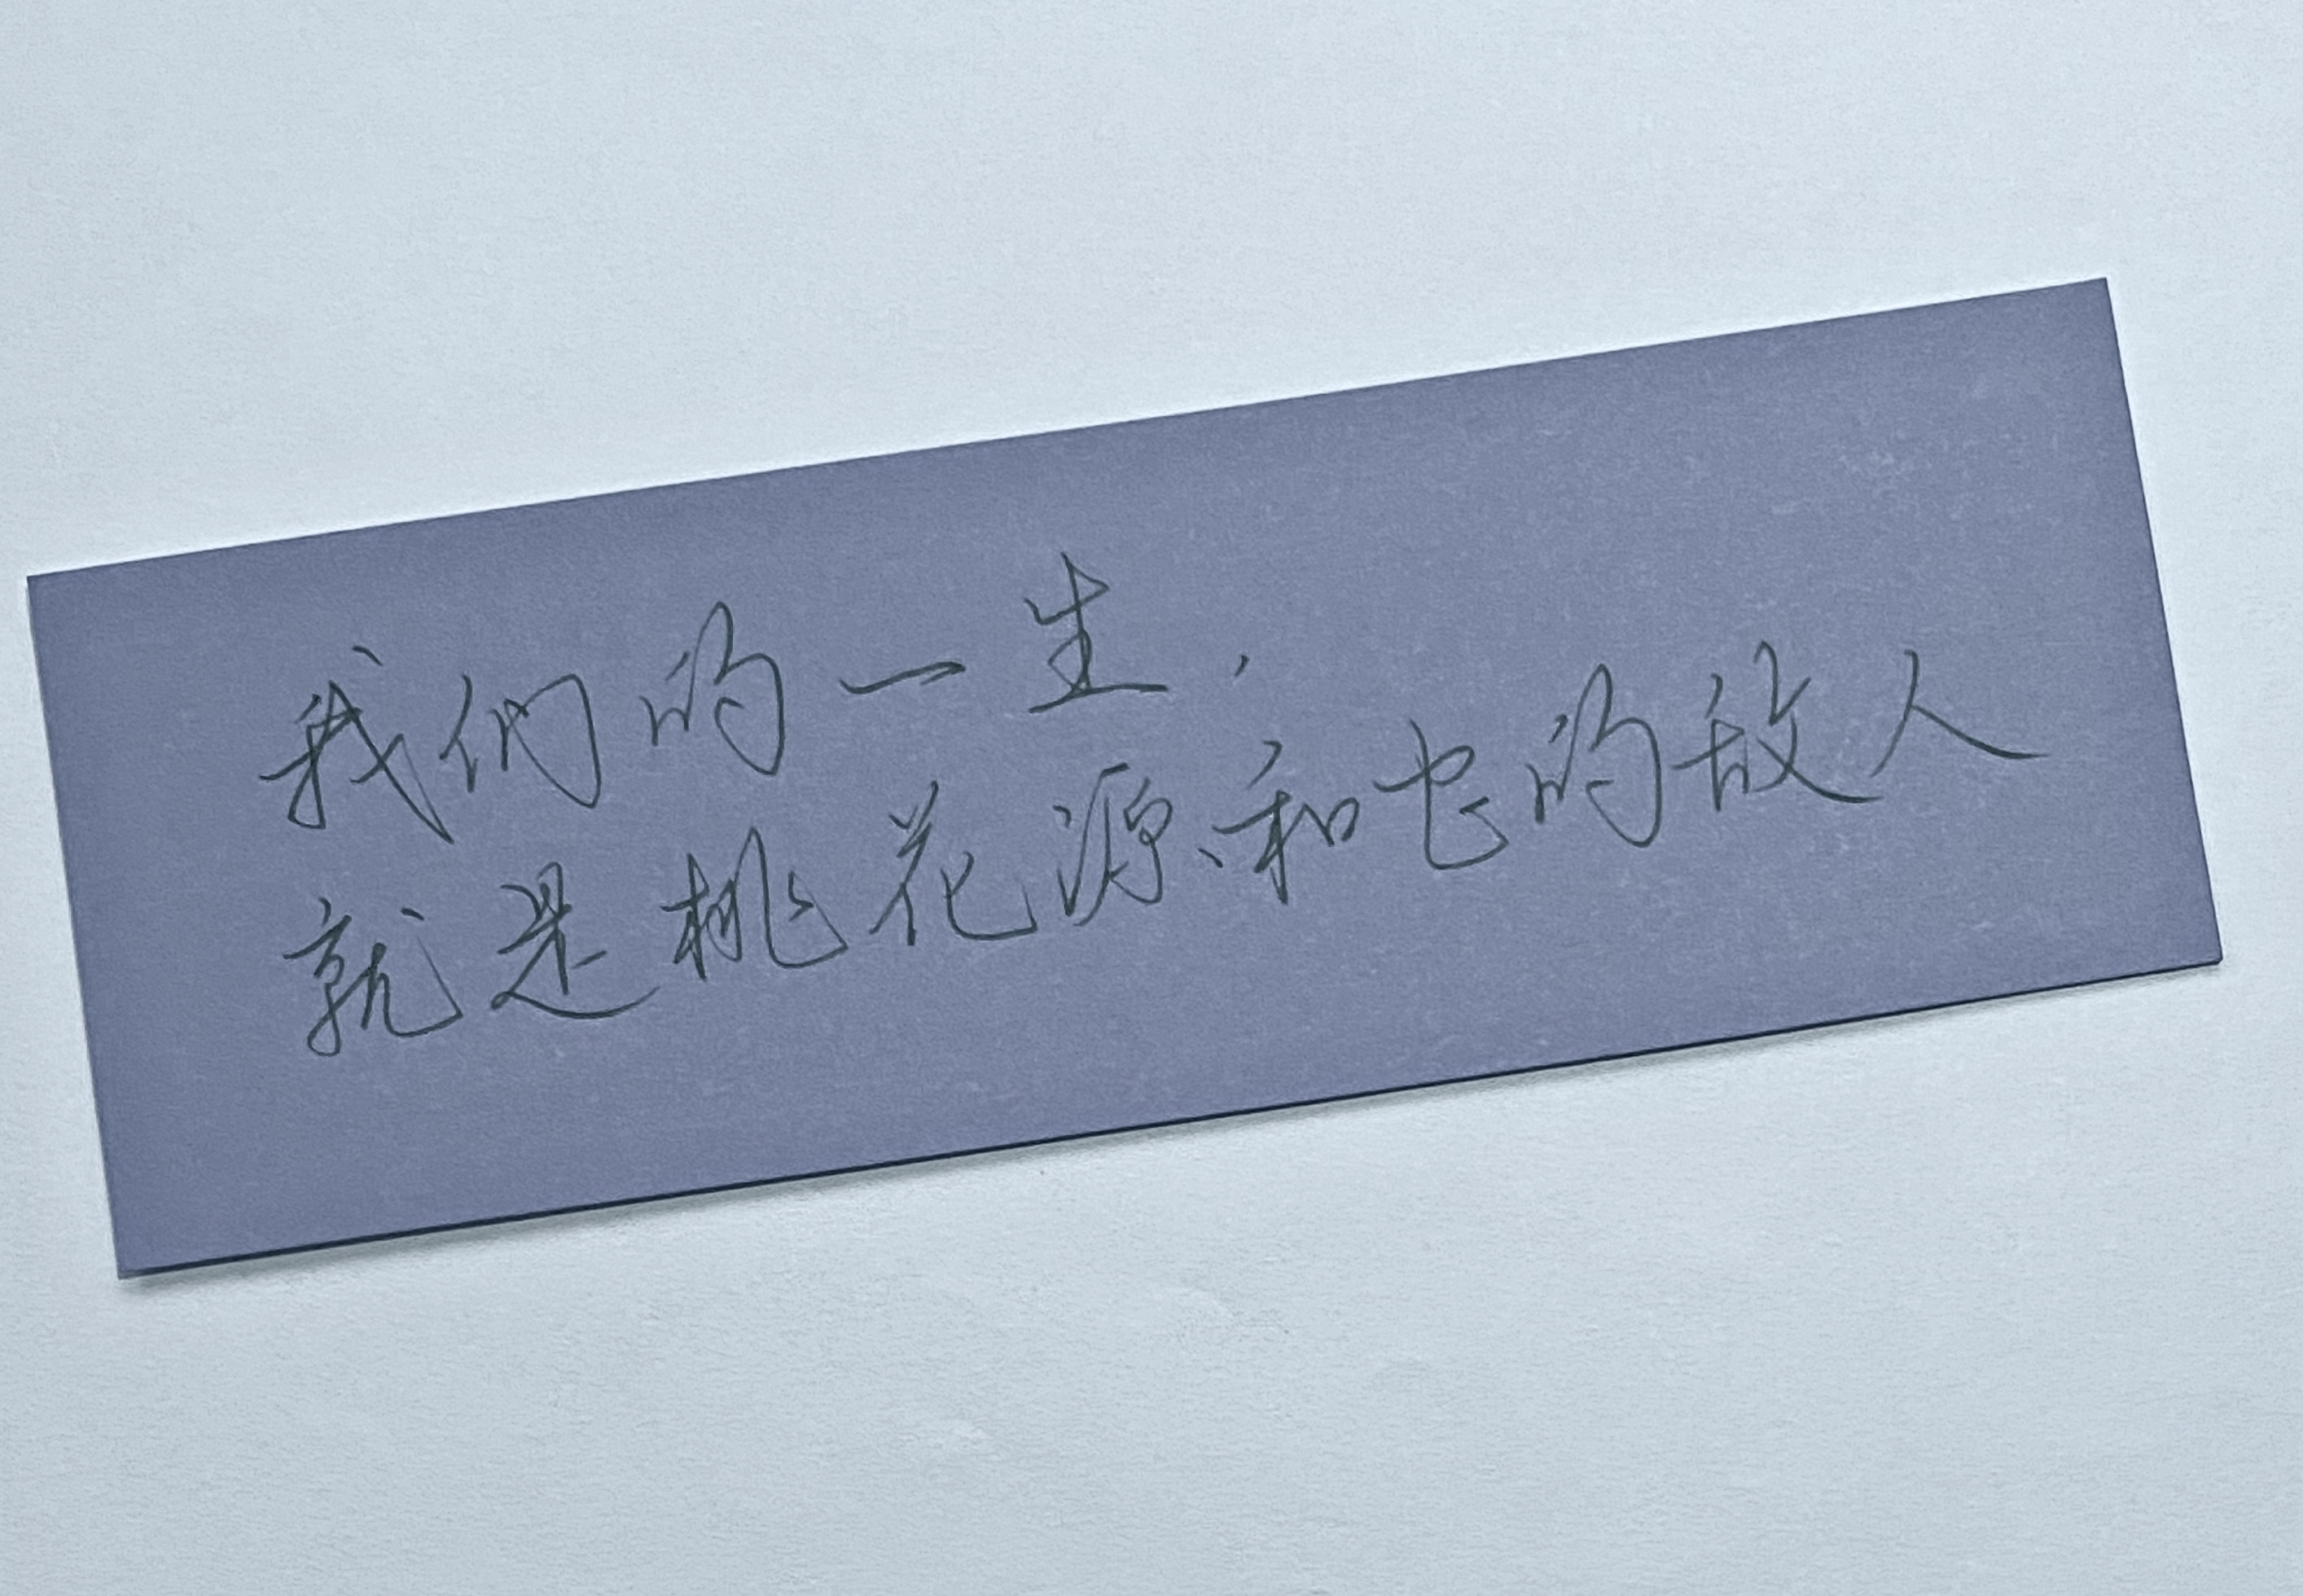 我们的一生，
就是桃花源和它的敌人